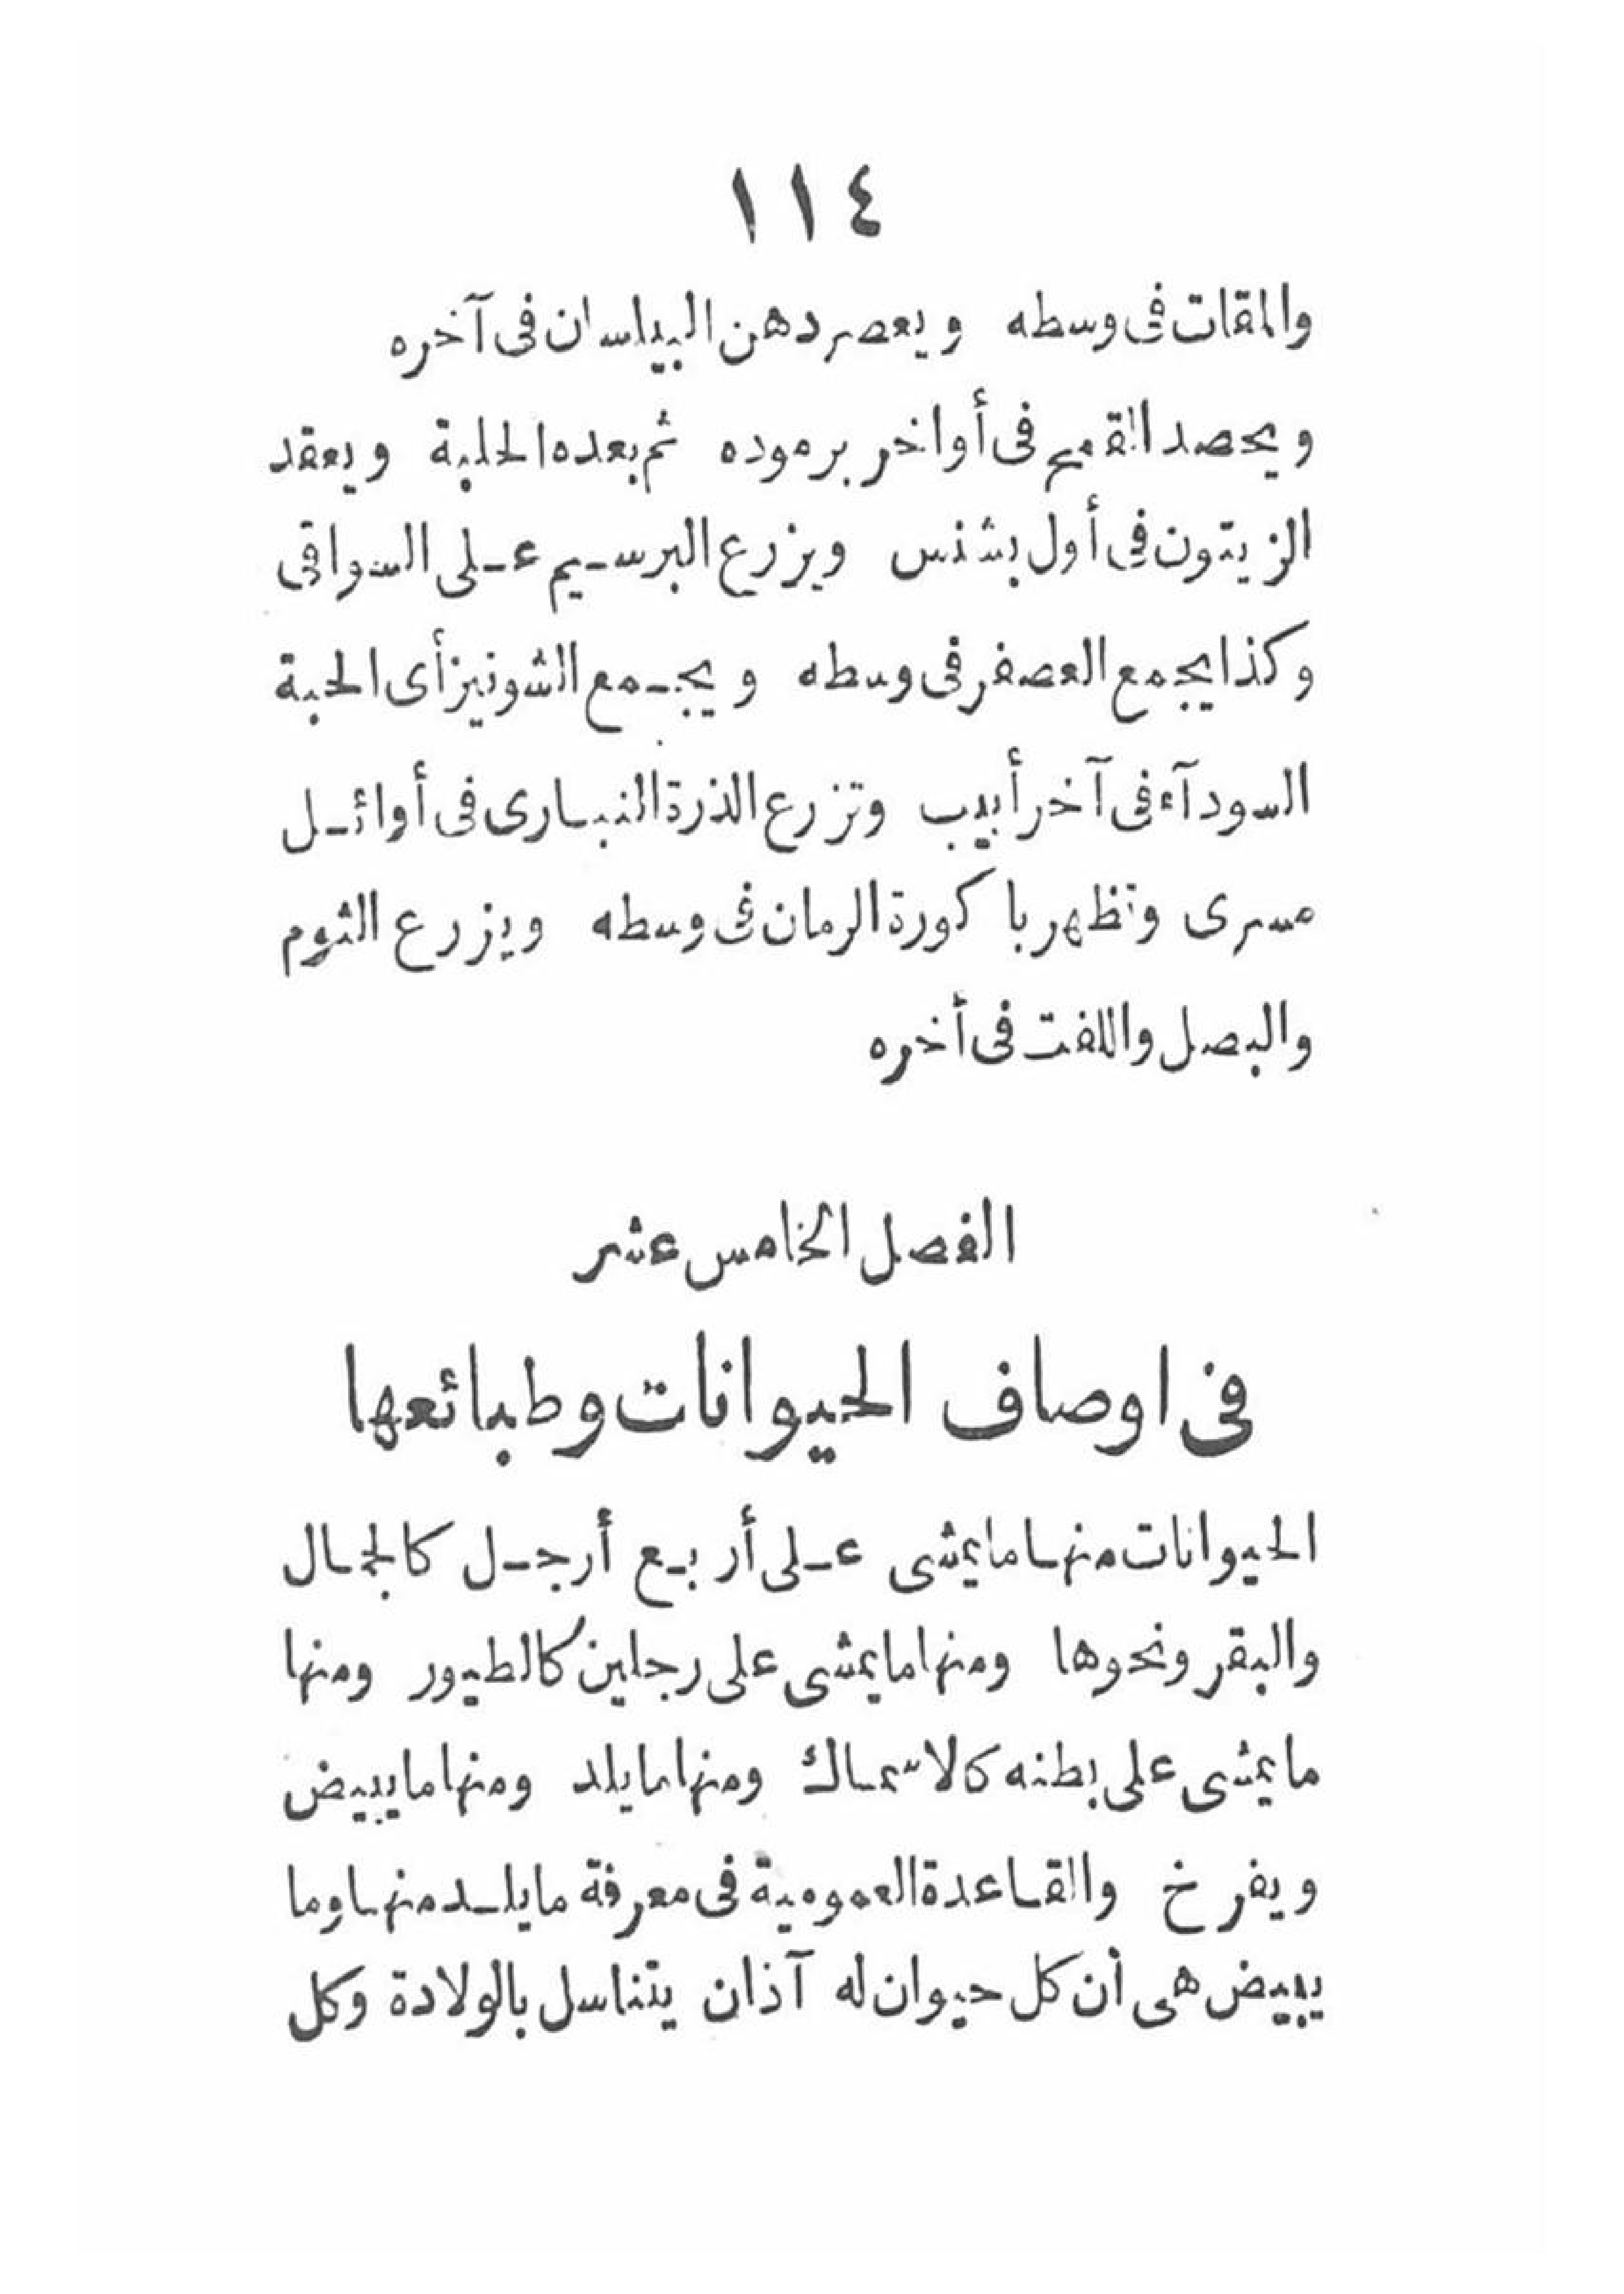 ١١٤
والمقات فى وسطه ويعصر دهن البيلسان فى آخره
ويحصد القمح فى أواخر برموده ثم بعده الحلبة ويعقد
الزيتون فى أول بشنس ويزرع البرسيم على السواقى
وكذا يجمع العصفر فى وسطه ويجمع الشونيز أى الحبة
السودآء فى آخر أبيب وتزرع الذرة النبارى فى أوائل
مسرى وتظهر باكورة الرمان فى وسطه ويزرع الثوم
والبصل واللفت فى أخره
الفصل الخامس عشر
فى اوصاف الحيوانات وطبائعها
الحيوانات منها ما يمشى على أربع أرجل كالجمال
والبقر ونحوها ومنها ما يمشى على رجلين كالطيور ومنها
ما يمشى على بطنه كالاسماك ومنها ما يلد ومنها ما يبيض
ويفرخ والقاعدة العمومية فى معرفة ما يلد منها وما
يبيض هى أن كل حيوان له آذان يتناسل بالولادة وكل